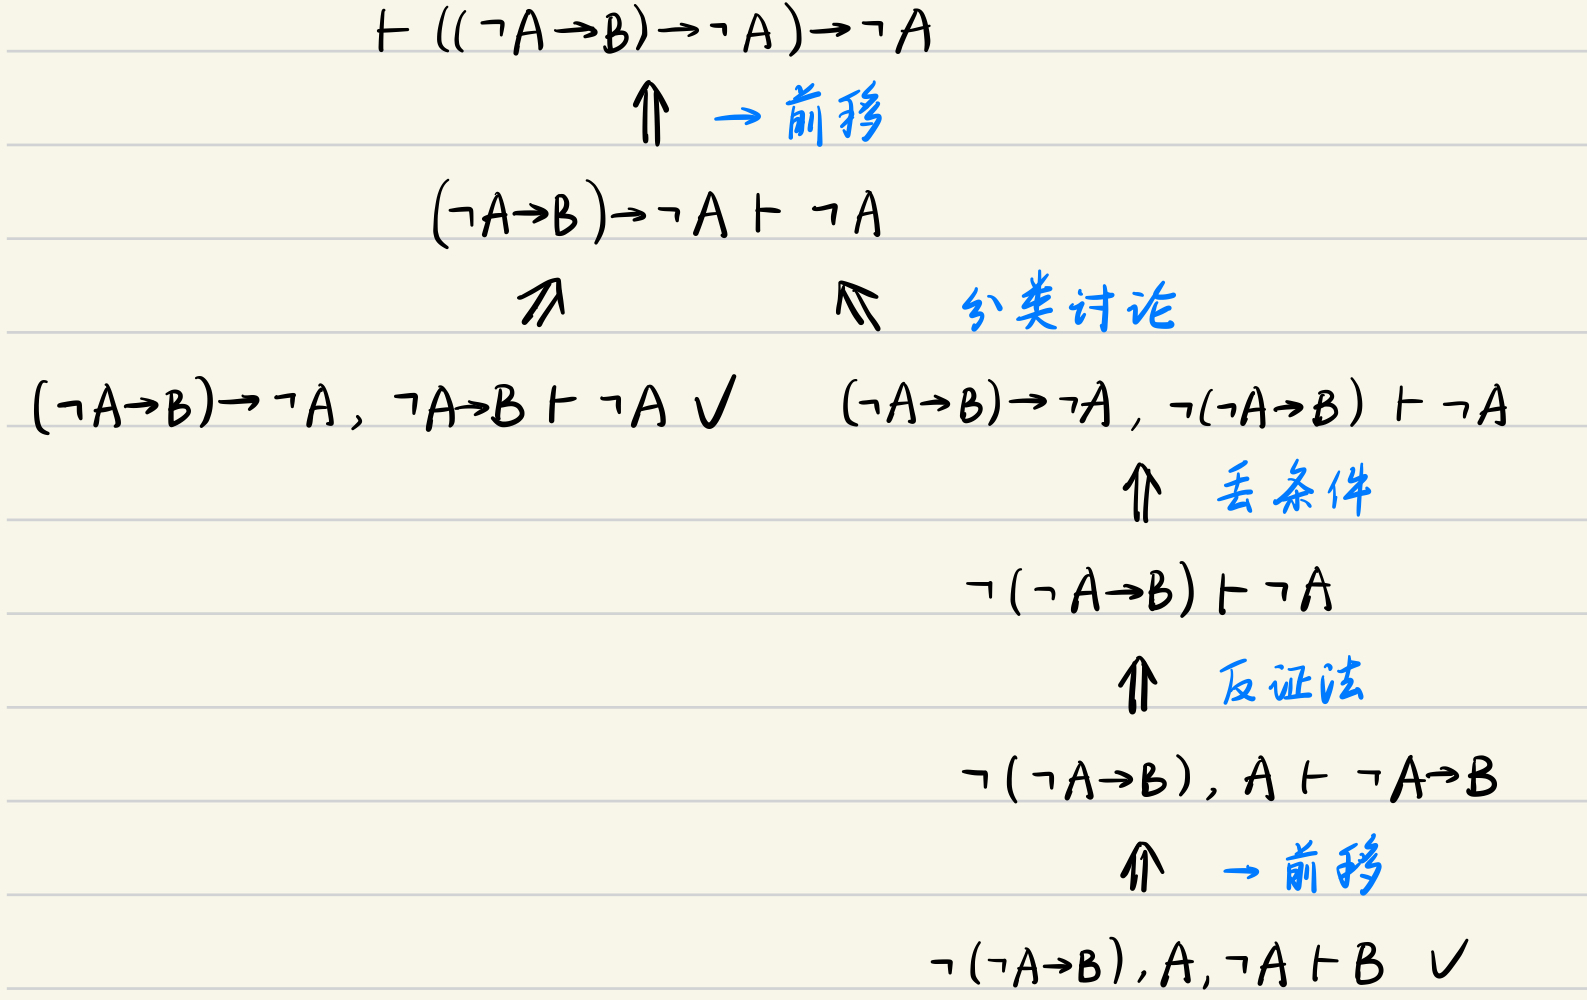 ⊢ ((¬A→B)→¬A)→¬A
⇑ →前移
(¬A→B)→¬A ⊢ ¬A
⇗ ⇖ 分类讨论
(¬A→B)→¬A, ¬A→B ⊢ ¬A ✓ (¬A→B)→¬A, ¬(¬A→B) ⊢ ¬A
⇑ 丢条件
¬(¬A→B) ⊢ ¬A
⇑ 反证法
¬(¬A→B), A ⊢ ¬A→B
⇑ →前移
¬(¬A→B), A, ¬A ⊢ B ✓